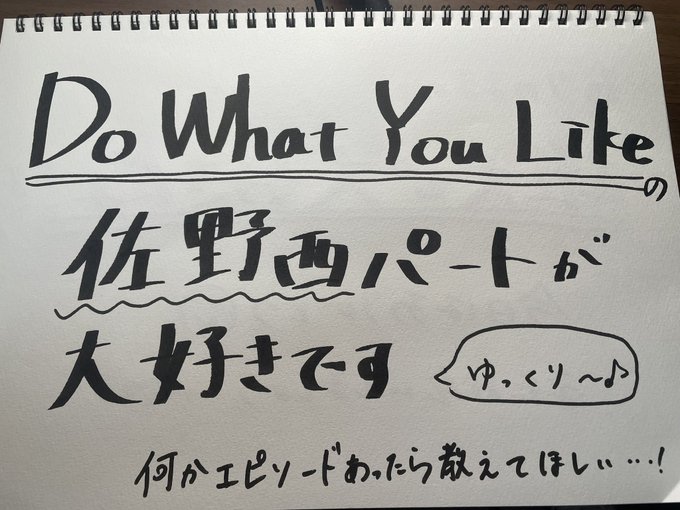 Do What You Likeの
佐野西パートが
大好きです
ゆっくり〜♪
何かエピソードあったら教えてほしい…!